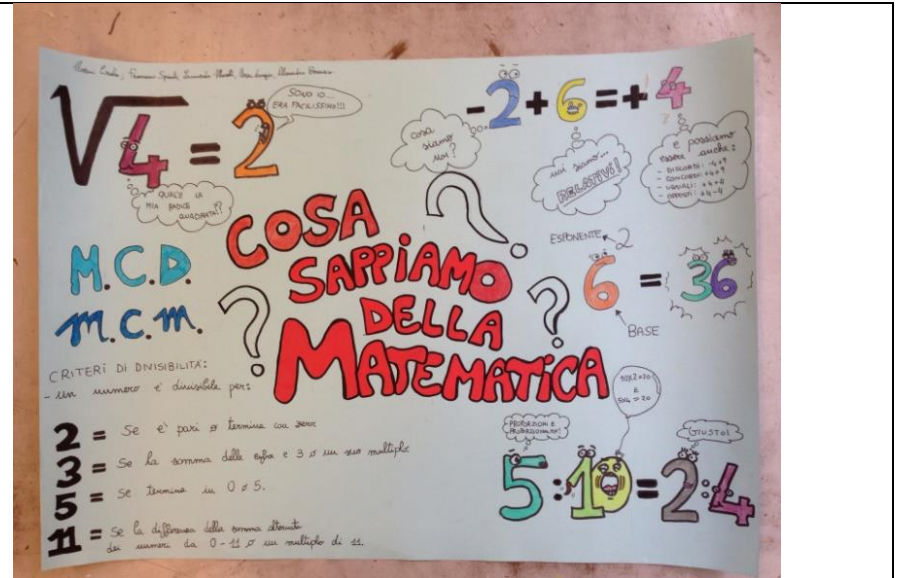 √4 = 2
SONO IO...
ERA FACILISSIMO!!!
QUAL'È LA
MIA RADICE
QUADRATA??
-2+6=+4
COSA
SIAMO
NOI?
NOI SIAMO...
RELATIVI!
E POSSIAMO
ESSERE ANCHE:
- DISCORDI: -4+9
- CONCORDI: +4+9
- UGUALI: +4+4
- OPPOSTI: +4-4
COSA
SAPPiAMO
DELLA
MATEMATICA
? ? ?
M.C.D.
m.c.m.
ESPONENTE 2
6 = 36
BASE
CRITERI DI DIVISIBILITÀ:
- un numero è divisibile per:
2 = Se e' pari o termina con zero
3 = Se la somma delle cifre e 3 o un suo multiplo
5 = Se termina in 0 o 5.
11 = Se la differenza della somma alternata
dei numeri da 0-11 o un multiplo di 11.
PROPORZIONI E
PROPORZIONALITÀ!
10x2=20
E
5x4=20
GIUSTO!
5:10=2:4